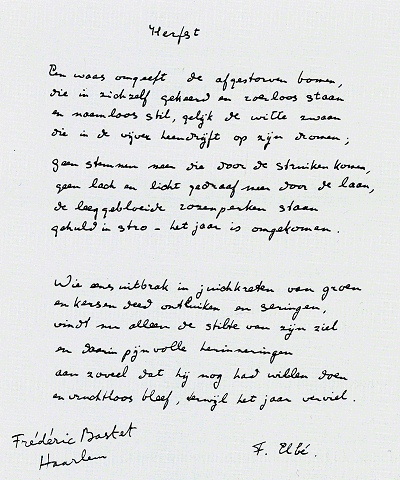 Herfst
Een waas omgeeft de afgestorven bomen,
die in zichzelf gekeerd en roerloos staan
en naamloos stil, gelijk de witte zwaan
die in de vijver heendrijft op zijn dromen;
geen stemmen meer die door de struiken komen,
geen lach en licht gedraaf meer door de laan,
de leeggebloeide rozenperken staan
gehuld in stro - het jaar is omgekomen.
Wie eens uitbrak in juichkreten van groen
en kersen deed ontluiken en seringen,
vindt nu alleen de stilte van zijn ziel
en daarin pijnvolle herinneringen
aan zoveel dat hij nog had willen doen
en vruchtloos bleef, terwijl het jaar verviel.
Frédéric Bastet
Haarlem
F. Elbé.